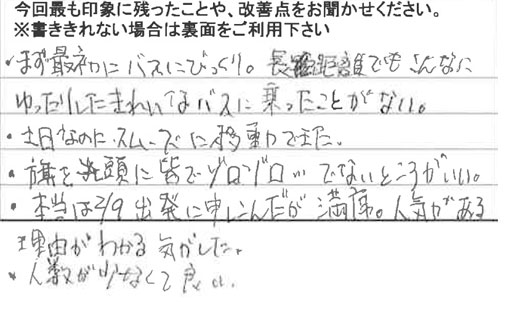 今回最も印象に残ったことや、改善点をお聞かせください。
※書ききれない場合は裏面をご利用下さい
・まず最初にバスにびっくり。長距離でもこんなに
ゆったりしたきれいなバスに乗ったことがない。
・土日なのにスムーズに移動できた。
・旗を先頭に皆でゾロゾロ…でないところがいい。
・本当は2/9出発に申しこんだが満席。人気がある
理由がわかる気がした。
・人数が少なくて良い。